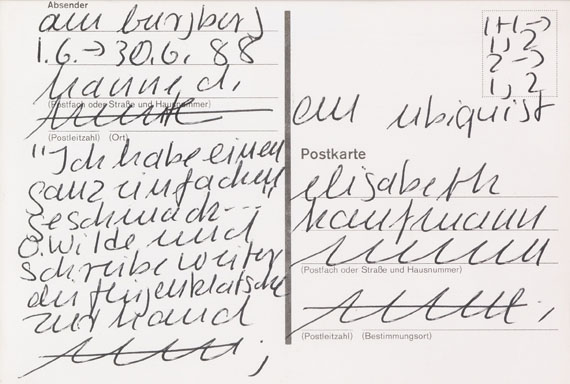 Absender
am burgberg
1.6. → 30.6. 88
hanne d.
(Postfach oder Straße und Hausnummer)
(Postleitzahl) (Ort)
"Ich habe einen
ganz einfachen
geschmack---
O. Wilde und
schreibe weiter
die fliegenklatsche
zur hand
1+1 →
1, 2
2 →
1, 2
ein ubiquist
Postkarte
elisabeth
kaufmann
(Postfach oder Straße und Hausnummer)
(Postleitzahl) (Bestimmungsort)